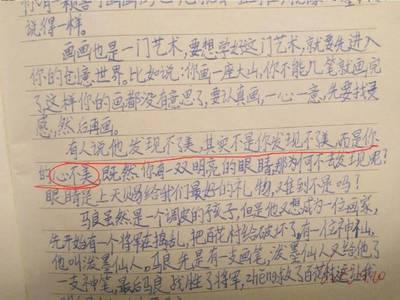 说得一样。
画画也是一门艺术,要想学好这门艺术,就要先进入
你的创意世界,比如说:你画一座大山,你不能几笔就画完
了,这样你的画都没有意思了,要认真画,一心一意,先要找灵
感,然后再画。
有人说他发现不了美,其实不是你发现不了美,而是你
的心不美,既然你有一双明亮的眼睛,那为何不去发现呢?
眼睛是上天赐给我们最好的礼物,难到不是吗?
马良虽然是一个调皮的孩子,但是他又想成为一位画家,
先开始有一个将军在捣乱,把百花村给破坏了,有一位神仙,
他叫泼墨仙人,马良先是有一支画笔,泼墨仙人又给他了
一支神笔,最后马良战胜了将军,zhěng救了百花村